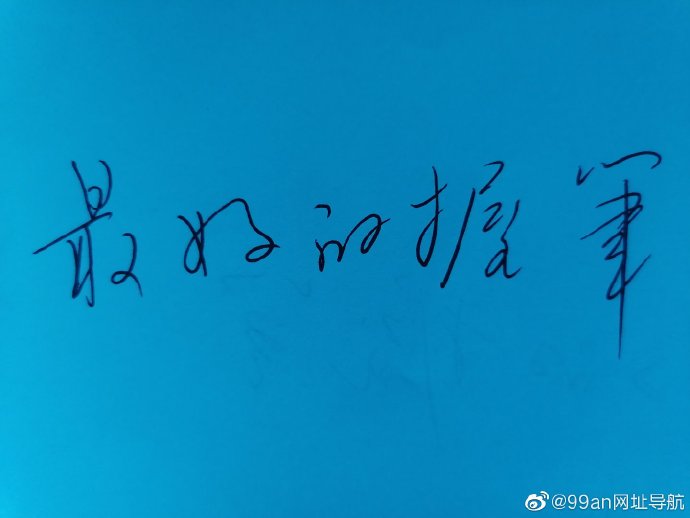 最好的握筆
@99an网址导航